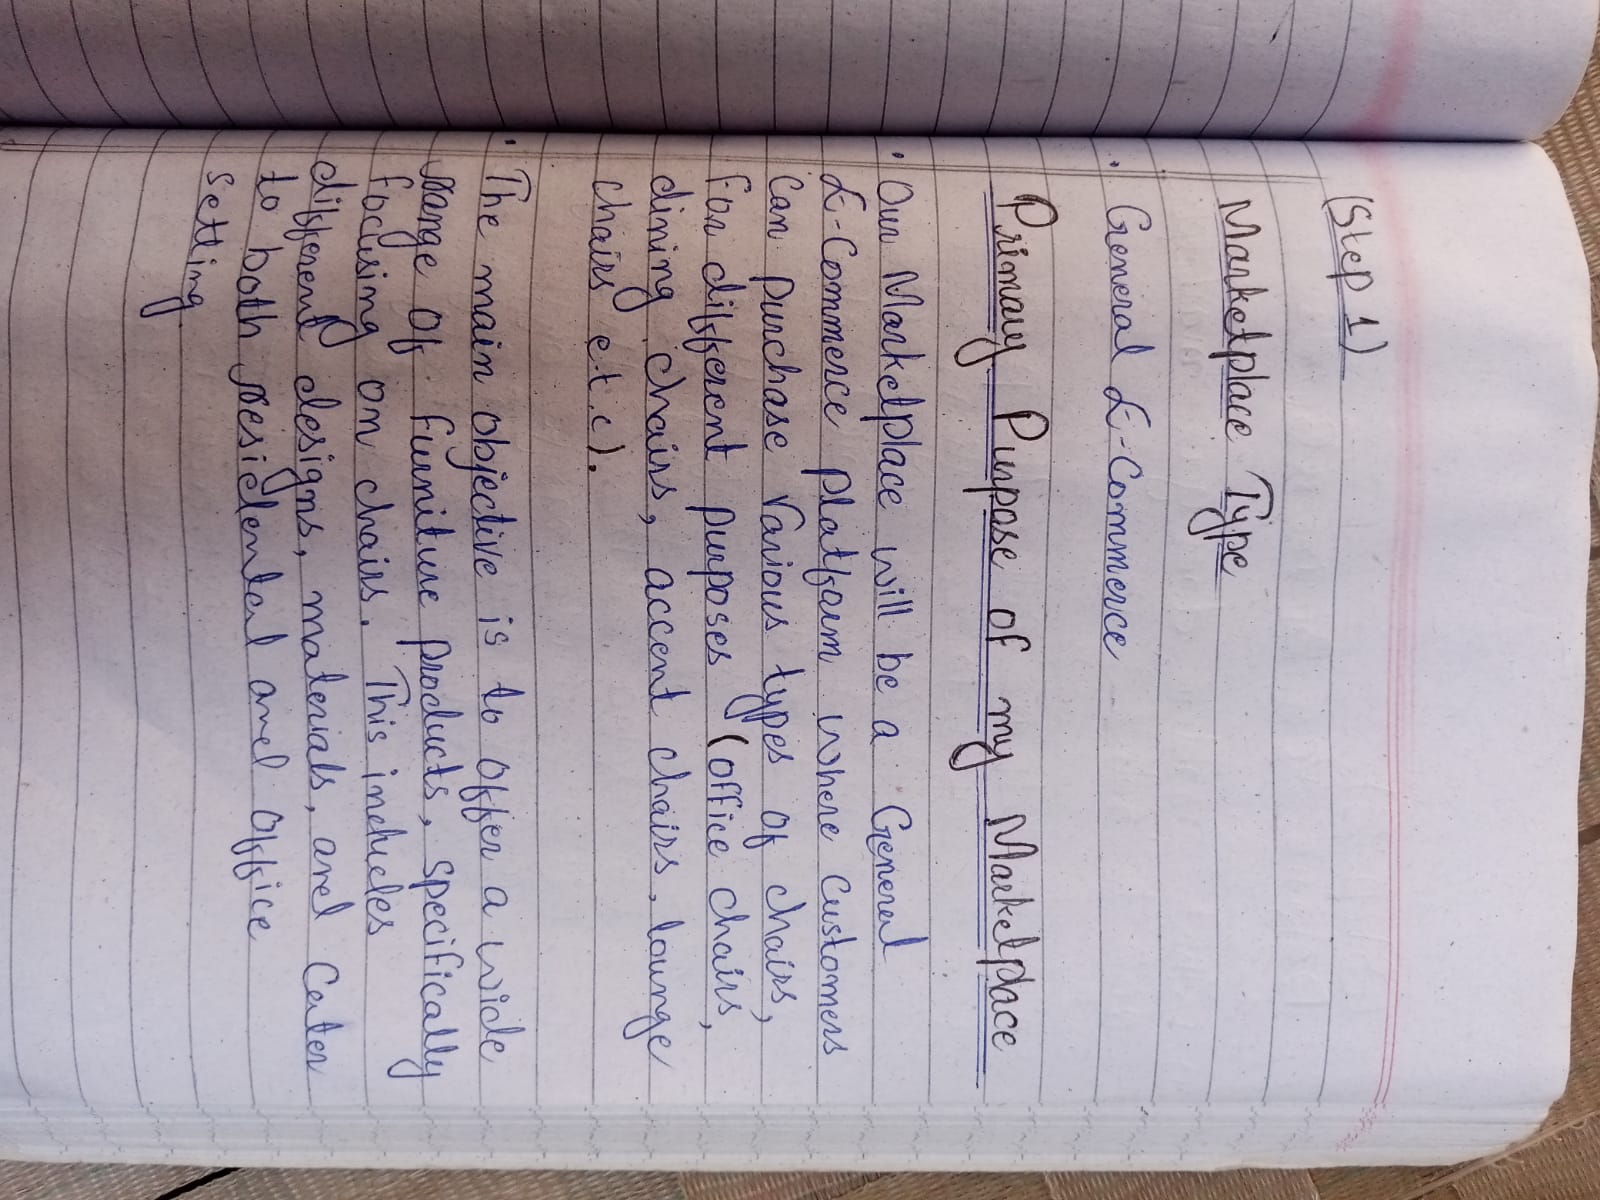 (Step 1)
Marketplace Type
. General E-Commerce
Primary Purpose of my Marketplace
. Our Marketplace will be a General
E-Commerce platform where Customers
Can purchase various types of chairs,
for different purposes (office chairs,
dining chairs, accent chairs, lounge
chairs e.t.c).
. The main objective is to offer a wide
range of furniture products, specifically
focusing on chairs. This includes
different designs, materials, and cater
to both residental and office
setting